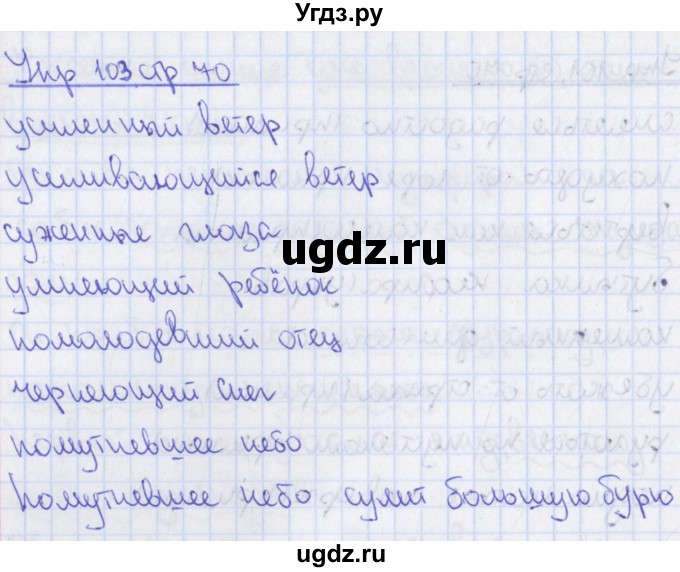 Угдз.ру
Упр 103 стр 70
усиленный ветер
усиливающийся ветер
суженные глаза
ugdz.ru
умнеющий ребёнок
помолодевший отец
чернеющий снег
помутневшее небо
Помутневшее небо сулит большую бурю
ugdz.ru